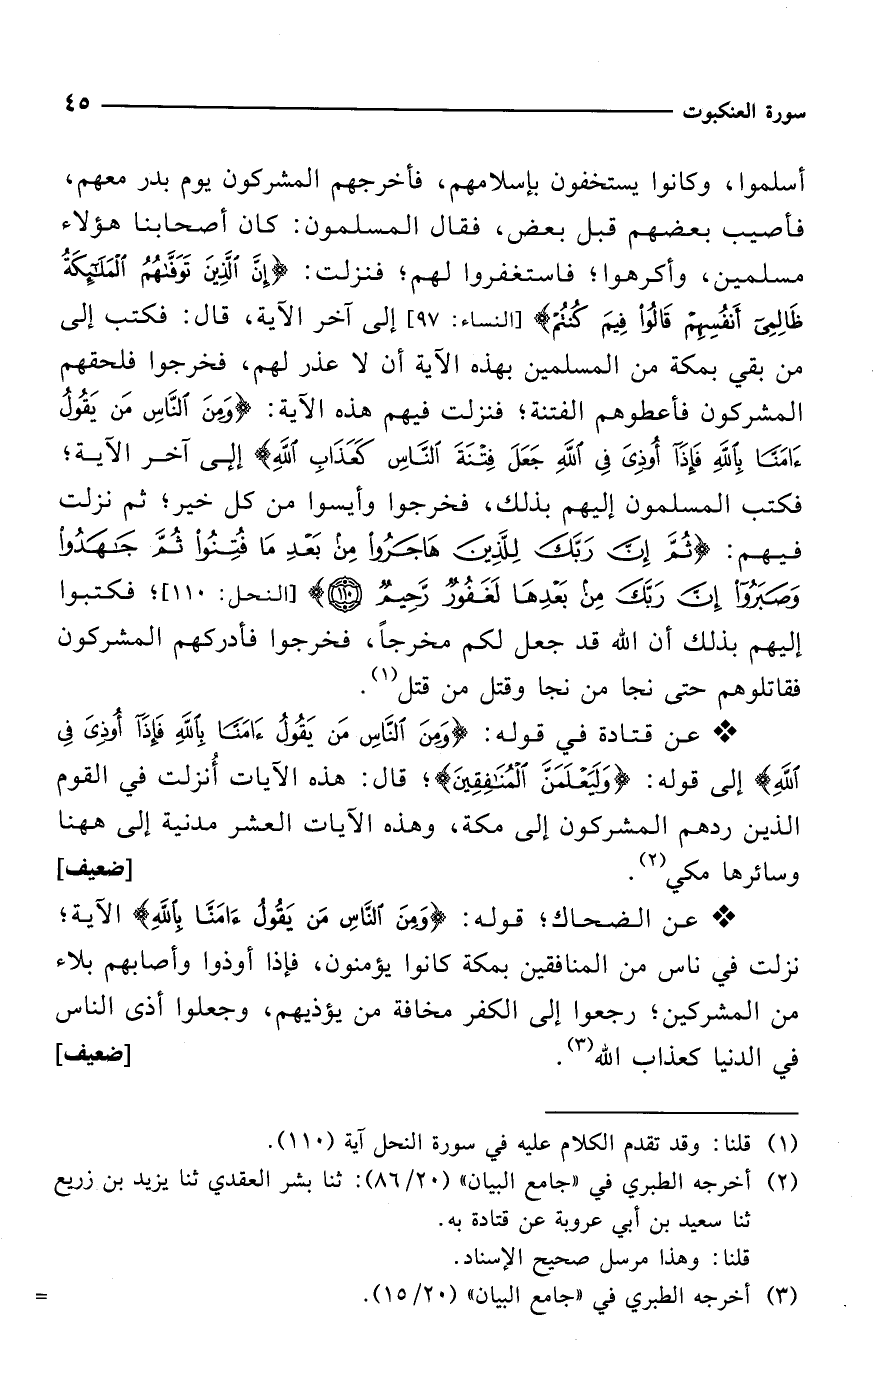 سورة العنكبوت ٤٥
أسلموا، وكانوا يستخفون بإسلامهم، فأخرجهم المشركون يوم بدر معهم،
فأصيب بعضهم قبل بعض، فقال المسلمون: كان أصحابنا هؤلاء
مسلمين، وأكرهوا؛ فاستغفروا لهم؛ فنزلت: ﴿إِنَّ ٱلَّذِينَ تَوَفَّىٰهُمُ ٱلْمَلَٰٓئِكَةُ
ظَالِمِىٓ أَنفُسِهِمْ قَالُوا۟ فِيمَ كُنتُمْ﴾ [النساء: ٩٧] إلى آخر الآية، قال: فكتب إلى
من بقي بمكة من المسلمين بهذه الآية أن لا عذر لهم، فخرجوا فلحقهم
المشركون فأعطوهم الفتنة؛ فنزلت فيهم هذه الآية: ﴿وَمِنَ ٱلنَّاسِ مَن يَقُولُ
ءَامَنَّا بِٱللَّهِ فَإِذَآ أُوذِىَ فِى ٱللَّهِ جَعَلَ فِتْنَةَ ٱلنَّاسِ كَعَذَابِ ٱللَّهِ﴾ إلى آخر الآية؛
فكتب المسلمون إليهم بذلك، فخرجوا وأيسوا من كل خير؛ ثم نزلت
فيهم: ﴿ثُمَّ إِنَّ رَبَّكَ لِلَّذِينَ هَاجَرُوا۟ مِنۢ بَعْدِ مَا فُتِنُوا۟ ثُمَّ جَٰهَدُوا۟
وَصَبَرُوٓا۟ إِنَّ رَبَّكَ مِنۢ بَعْدِهَا لَغَفُورٌ رَّحِيمٌ ١١٠﴾ [النحل: ١١٠]؛ فكتبوا
إليهم بذلك أن الله قد جعل لكم مخرجاً، فخرجوا فأدركهم المشركون
فقاتلوهم حتى نجا من نجا وقتل من قتل(١).
❖ عن قتادة في قوله: ﴿وَمِنَ ٱلنَّاسِ مَن يَقُولُ ءَامَنَّا بِٱللَّهِ فَإِذَآ أُوذِىَ فِى
ٱللَّهِ﴾ إلى قوله: ﴿وَلَيَعْلَمَنَّ ٱلْمُنَٰفِقِينَ﴾؛ قال: هذه الآيات أُنزلت في القوم
الذين ردهم المشركون إلى مكة، وهذه الآيات العشر مدنية إلى ههنا
وسائرها مكي(٢). [ضعيف]
❖ عن الضحاك؛ قوله: ﴿وَمِنَ ٱلنَّاسِ مَن يَقُولُ ءَامَنَّا بِٱللَّهِ﴾ الآية؛
نزلت في ناس من المنافقين بمكة كانوا يؤمنون، فإذا أوذوا وأصابهم بلاء
من المشركين؛ رجعوا إلى الكفر مخافة من يؤذيهم، وجعلوا أذى الناس
في الدنيا كعذاب الله(٣). [ضعيف]
(١) قلنا: وقد تقدم الكلام عليه في سورة النحل آية (١١٠).
(٢) أخرجه الطبري في «جامع البيان» (٨٦/٢٠): ثنا بشر العقدي ثنا يزيد بن زريع
ثنا سعيد بن أبي عروبة عن قتادة به.
قلنا: وهذا مرسل صحيح الإسناد.
(٣) أخرجه الطبري في «جامع البيان» (١٥/٢٠). =